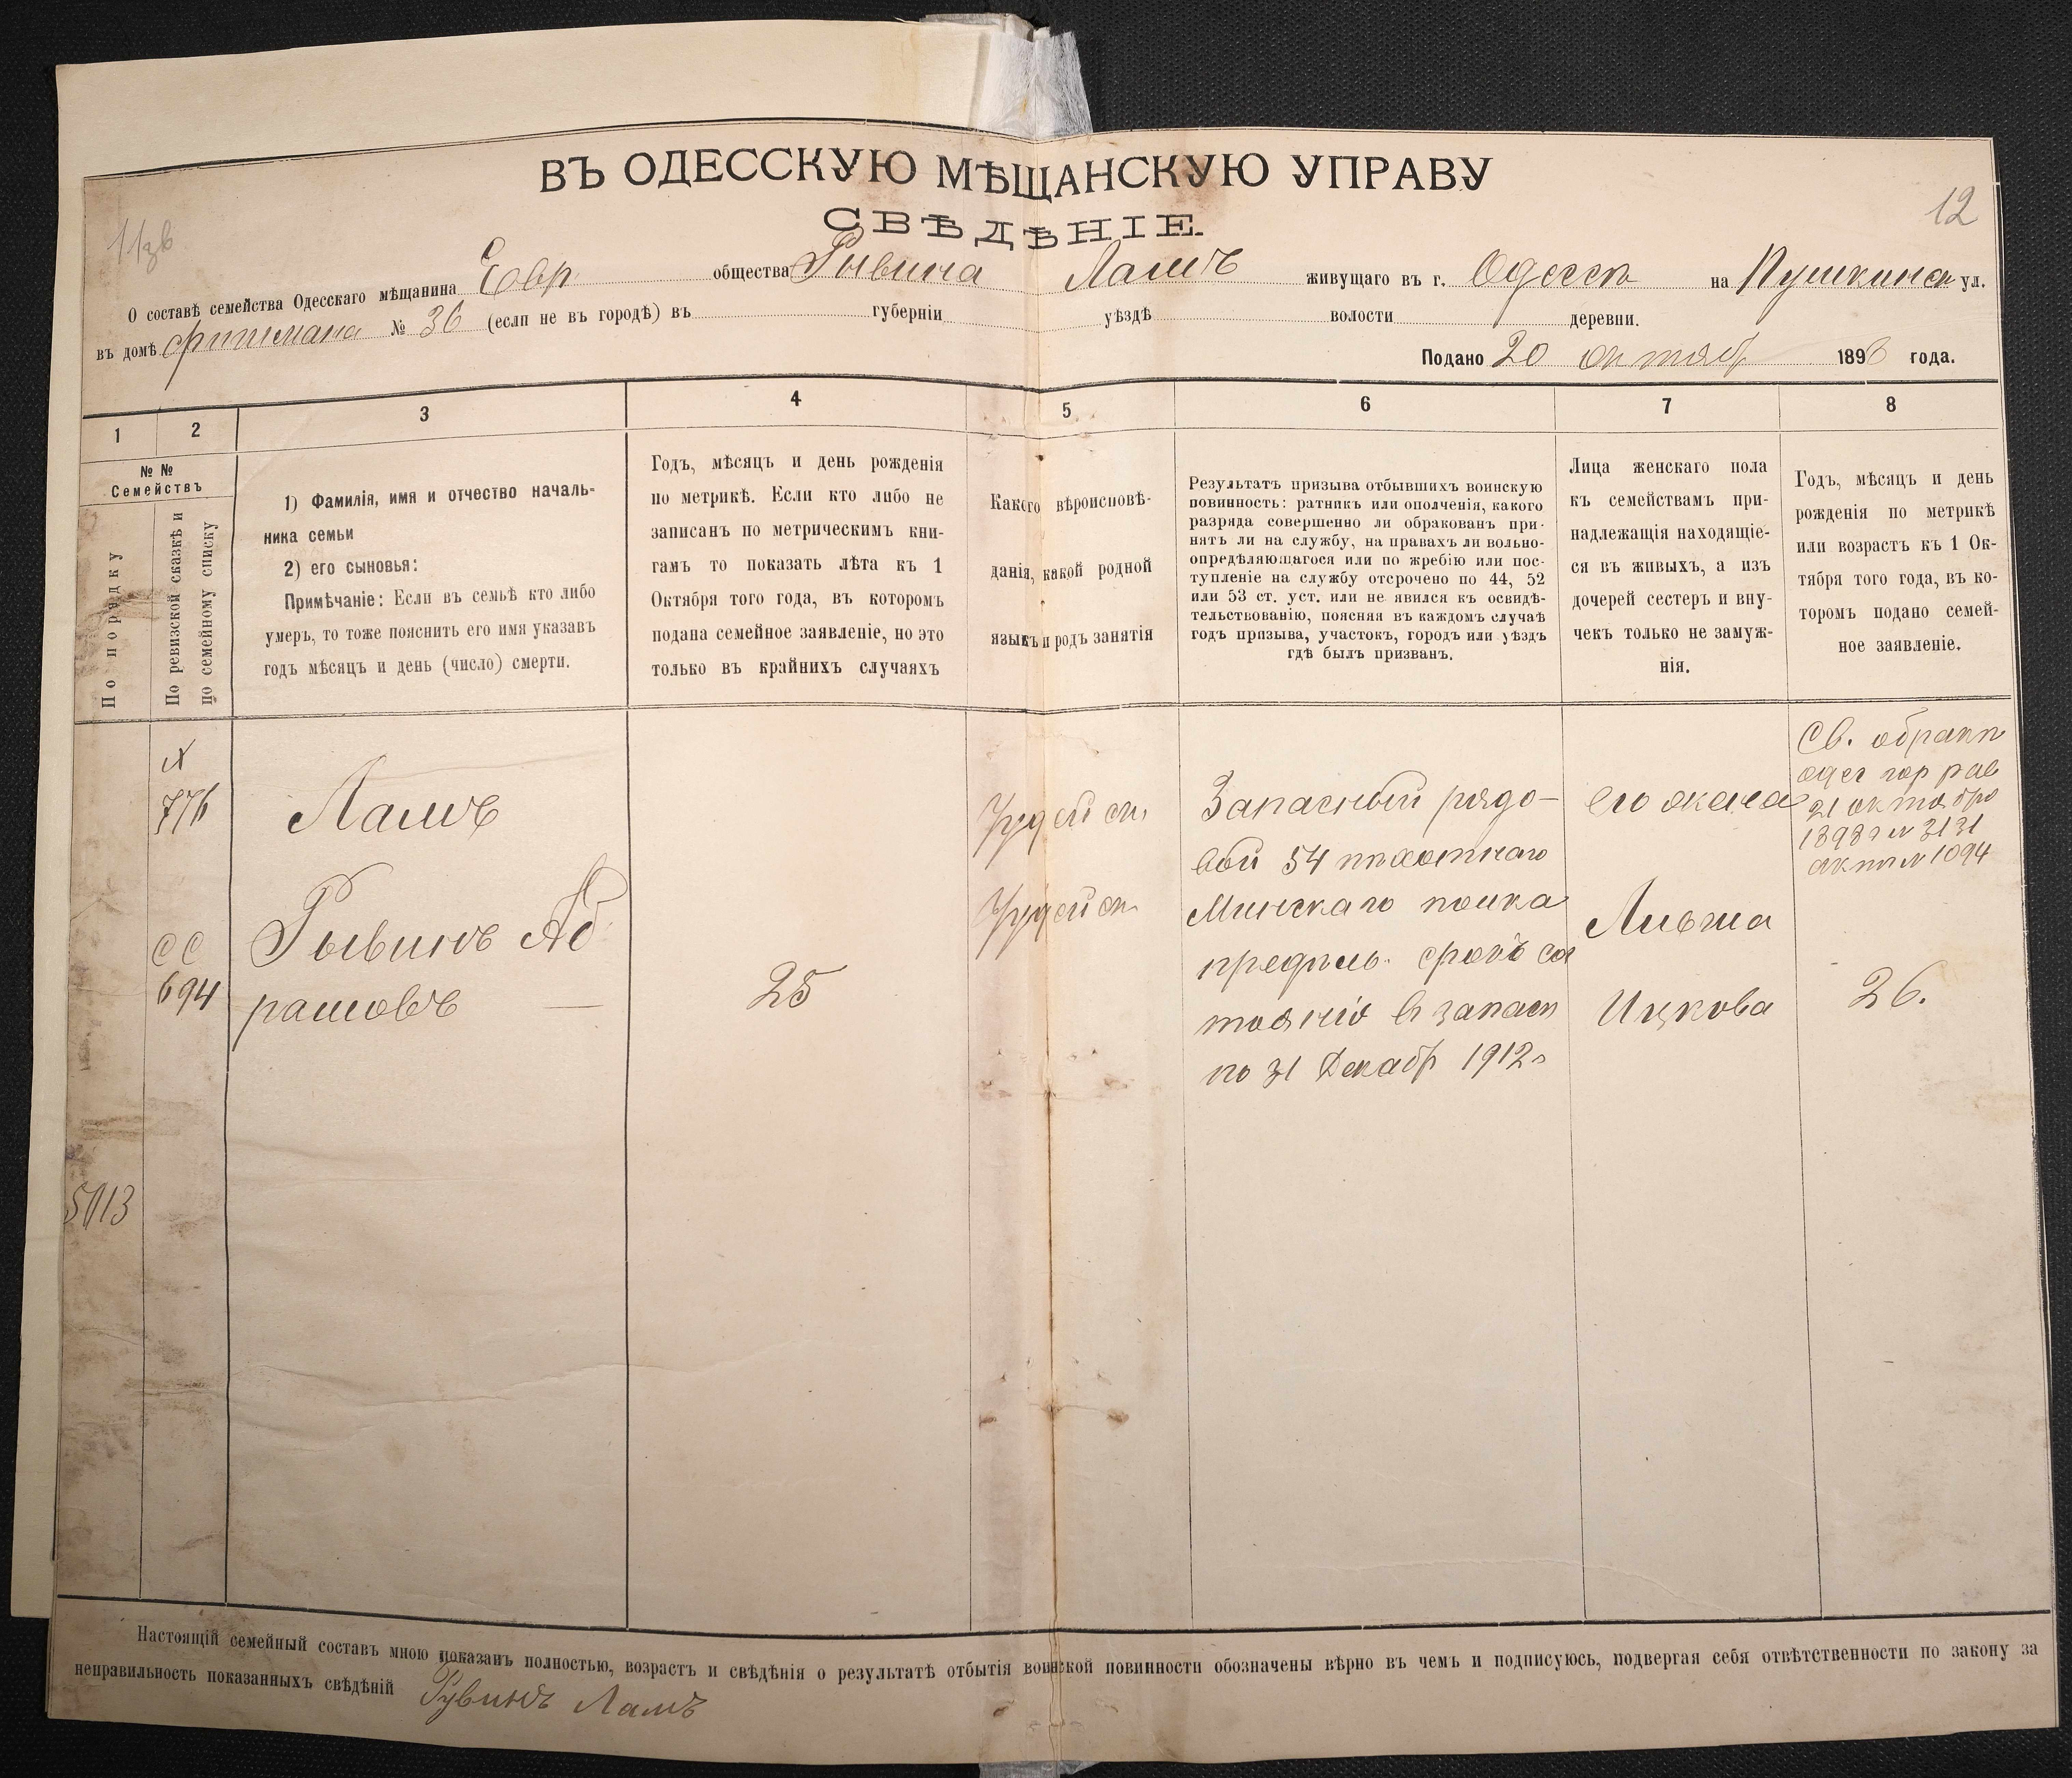 ВЪ ОДЕССКУЮ МѢЩАНСКУЮ УПРАВУ
12
СВѢДѢНІЕ.
О составѣ семейства Одесскаго мѣщанина Евр. общества Рывина Ламъ живущаго въ г. Одессѣ на Пушкинск ул.
въ домѣ № 36 (если не въ городѣ) въ губерніи уѣздѣ волости деревни.
Подано 20 октяб 1898 года.
1 2 3 4 5 6 7 8
№ №
Семействъ
По порядку
По ревизской сказкѣ и
по семейному списку
1) Фамилія, имя и отчество началь-
ника семьи
2) его сыновья:
Примѣчаніе: Если въ семьѣ кто либо
умеръ, то тоже пояснить его имя указавъ
годъ мѣсяцъ и день (число) смерти.
Годъ, мѣсяцъ и день рожденія
по метрикѣ. Если кто либо не
записанъ по метрическимъ кни-
гамъ то показать лѣта къ 1
Октября того года, въ которомъ
подана семейное заявленіе, но это
только въ крайнихъ случаяхъ
Какого вѣроисповѣ-
данія, какой родной
языкъ и родъ занятія
Результатъ призыва отбывшихъ воинскую
повинность: ратникъ или ополченія, какого
разряда совершенно ли обракованъ при-
нятъ ли на службу, на правахъ ли вольно-
опредѣляющагося или по жребію или пос-
тупленіе на службу отсрочено по 44, 52
или 53 ст. уст. или не явился къ освидѣ-
тельствованію, поясняя въ каждомъ случаѣ
годъ призыва, участокъ, городъ или уѣздъ
гдѣ былъ призванъ.
Лица женскаго пола
къ семействамъ при-
надлежащія находящіе-
ся въ живыхъ, а изъ
дочерей сестеръ и вну-
чекъ только не замуж-
нія.
Годъ, мѣсяцъ и день
рожденія по метрикѣ
или возрастъ къ 1 Ок-
тября того года, въ ко-
торомъ подано семей-
ное заявленіе.
776
СС
694
5013
Ламъ
Рывинъ Аб
рамовъ —
25
Іудейск.
Іудейск.
Запасный рядо-
вой 54 пѣхотнаго
Минскаго полка
предѣль. срокъ сос
тоянія в запасѣ
по 31 Декабр 1912 г
его жена
Ицкова
Св. о бракѣ
одес гор рав
21 октября
1898 г № 3131
актъ № 1094
26.
Настоящій семейный составъ мною показанъ полностью, возрастъ и свѣдѣнія о результатѣ отбытія воинской повинности обозначены вѣрно въ чемъ и подписуюсь, подвергая себя отвѣтственности по закону за
неправильность показанныхъ свѣдѣній Рувинъ Ламъ